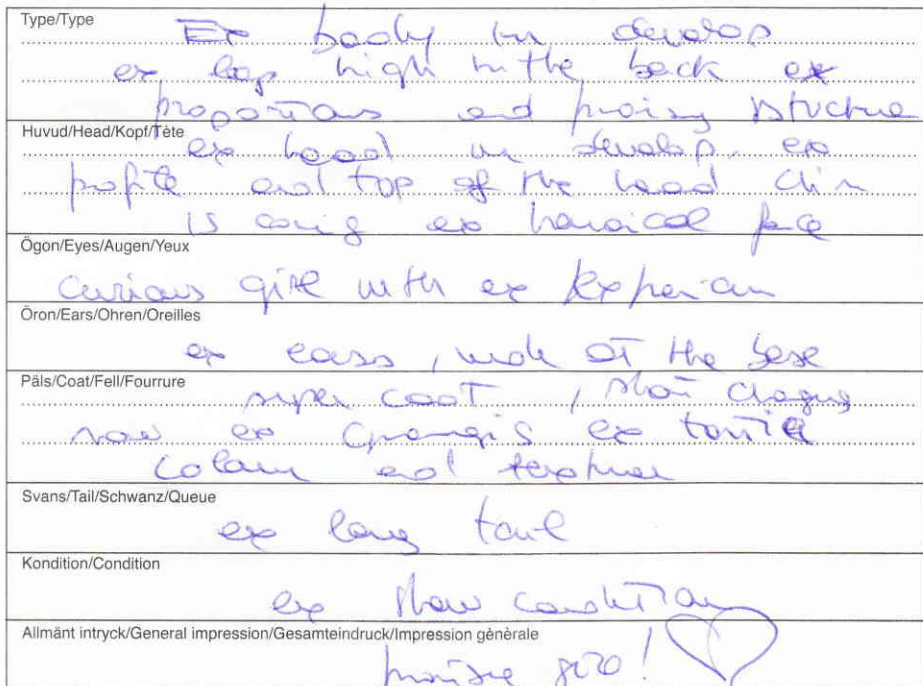 Type/Type
Ex body in develop
ex legs high in the back ex
proportions and promising structure
Huvud/Head/Kopf/Tète
ex head in develop. ex
profile and top of the head chin
is coming ex face
Ögon/Eyes/Augen/Yeux
Curious girl with ex expression
Öron/Ears/Ohren/Oreilles
ex ears, wide at the base
Päls/Coat/Fell/Fourrure
super coat, short
now ex ex tortie
colour and texture
Svans/Tail/Schwanz/Queue
ex long tail
Kondition/Condition
ex show condition
Allmänt intryck/General impression/Gesamteindruck/Impression gènèrale
girl!